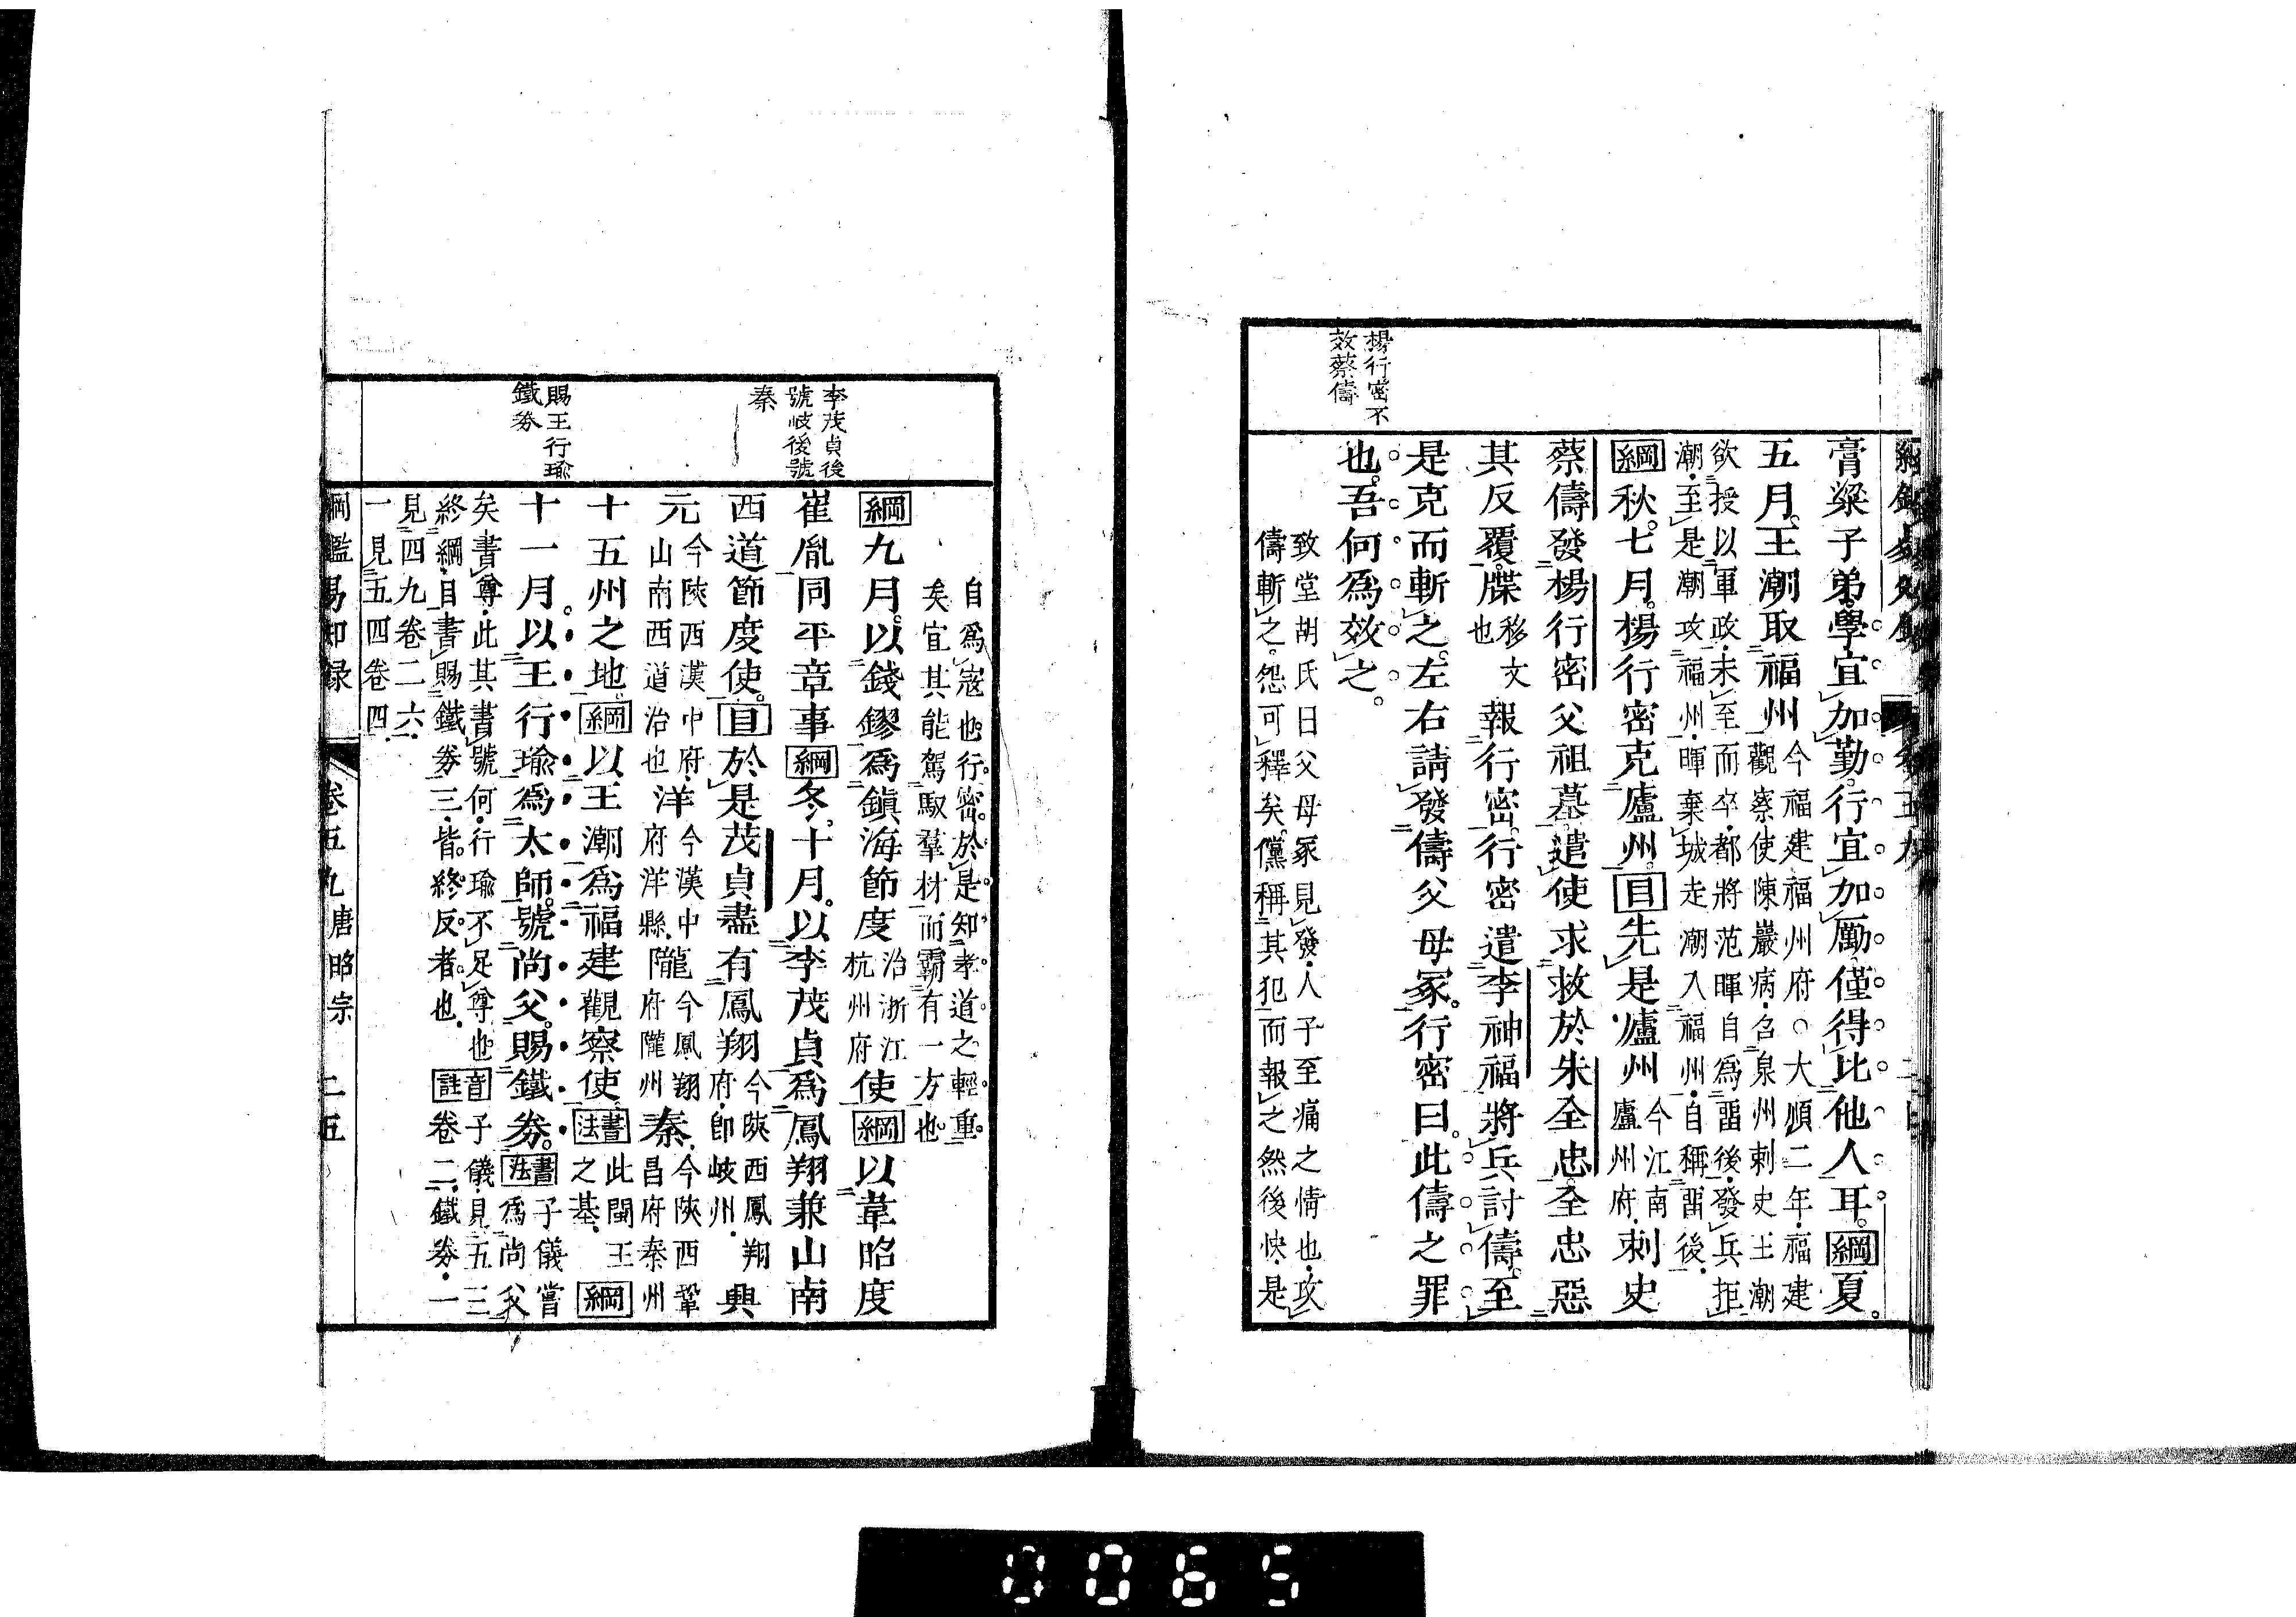 楊行密不
效蔡儔
膏粱子弟學宜加勤行宜加勵僅得比他人耳。綱夏。
五月王潮取福州
今福建福州府○大順二年福建
觀察使陳巖病召泉州刺史王潮
欲授以軍政未至而卒都將范暉自爲畱後發兵拒
潮至是潮攻福州暉棄城走潮入福州自稱畱後
綱秋七月楊行密克廬州目先是廬州
今江南
廬州府
刺史
蔡儔發楊行密父祖墓遣使求救於朱全忠全忠惡
其反覆牒
移文
也
報行密行密遣李神福將兵討儔至
是克而斬之左右請發儔父母冢行密曰此儔之罪
也吾何爲效之。
致堂胡氏曰父母冢見發人子至痛之情也攻
儔斬之怨可釋矣儻稱其犯而報之然後快是
李茂貞後
號岐後號
秦
賜王行瑜
鐵券
自爲寇也行密於是知孝道之輕重
矣宜其能駕馭羣材而霸有一方也
綱九月以錢鏐爲鎭海節度
治浙江
杭州府
使綱以韋昭度
崔胤同平章事綱冬十月以李茂貞爲鳳翔兼山南
西道節度使目於是茂貞盡有鳳翔
今陝西鳳翔
府卽岐州
興
元
今陝西漢中府
山南西道治也
洋
今漢中
府洋縣
隴
今鳳翔
府隴州
秦
今陝西鞏
昌府秦州
十五州之地綱以王潮爲福建觀察使書法
此閩王
之基
綱
十一月以王行瑜爲太師號尚父賜鐵券書法
子儀嘗
爲尚父
矣書尊此其書號何行瑜不足尊也音註子儀見五三
終綱目書賜鐵券三皆終反者也
卷二鐵券一
見四九卷二六
一見五四卷四
綱鑑易知録
卷五九唐昭宗
二五
0065